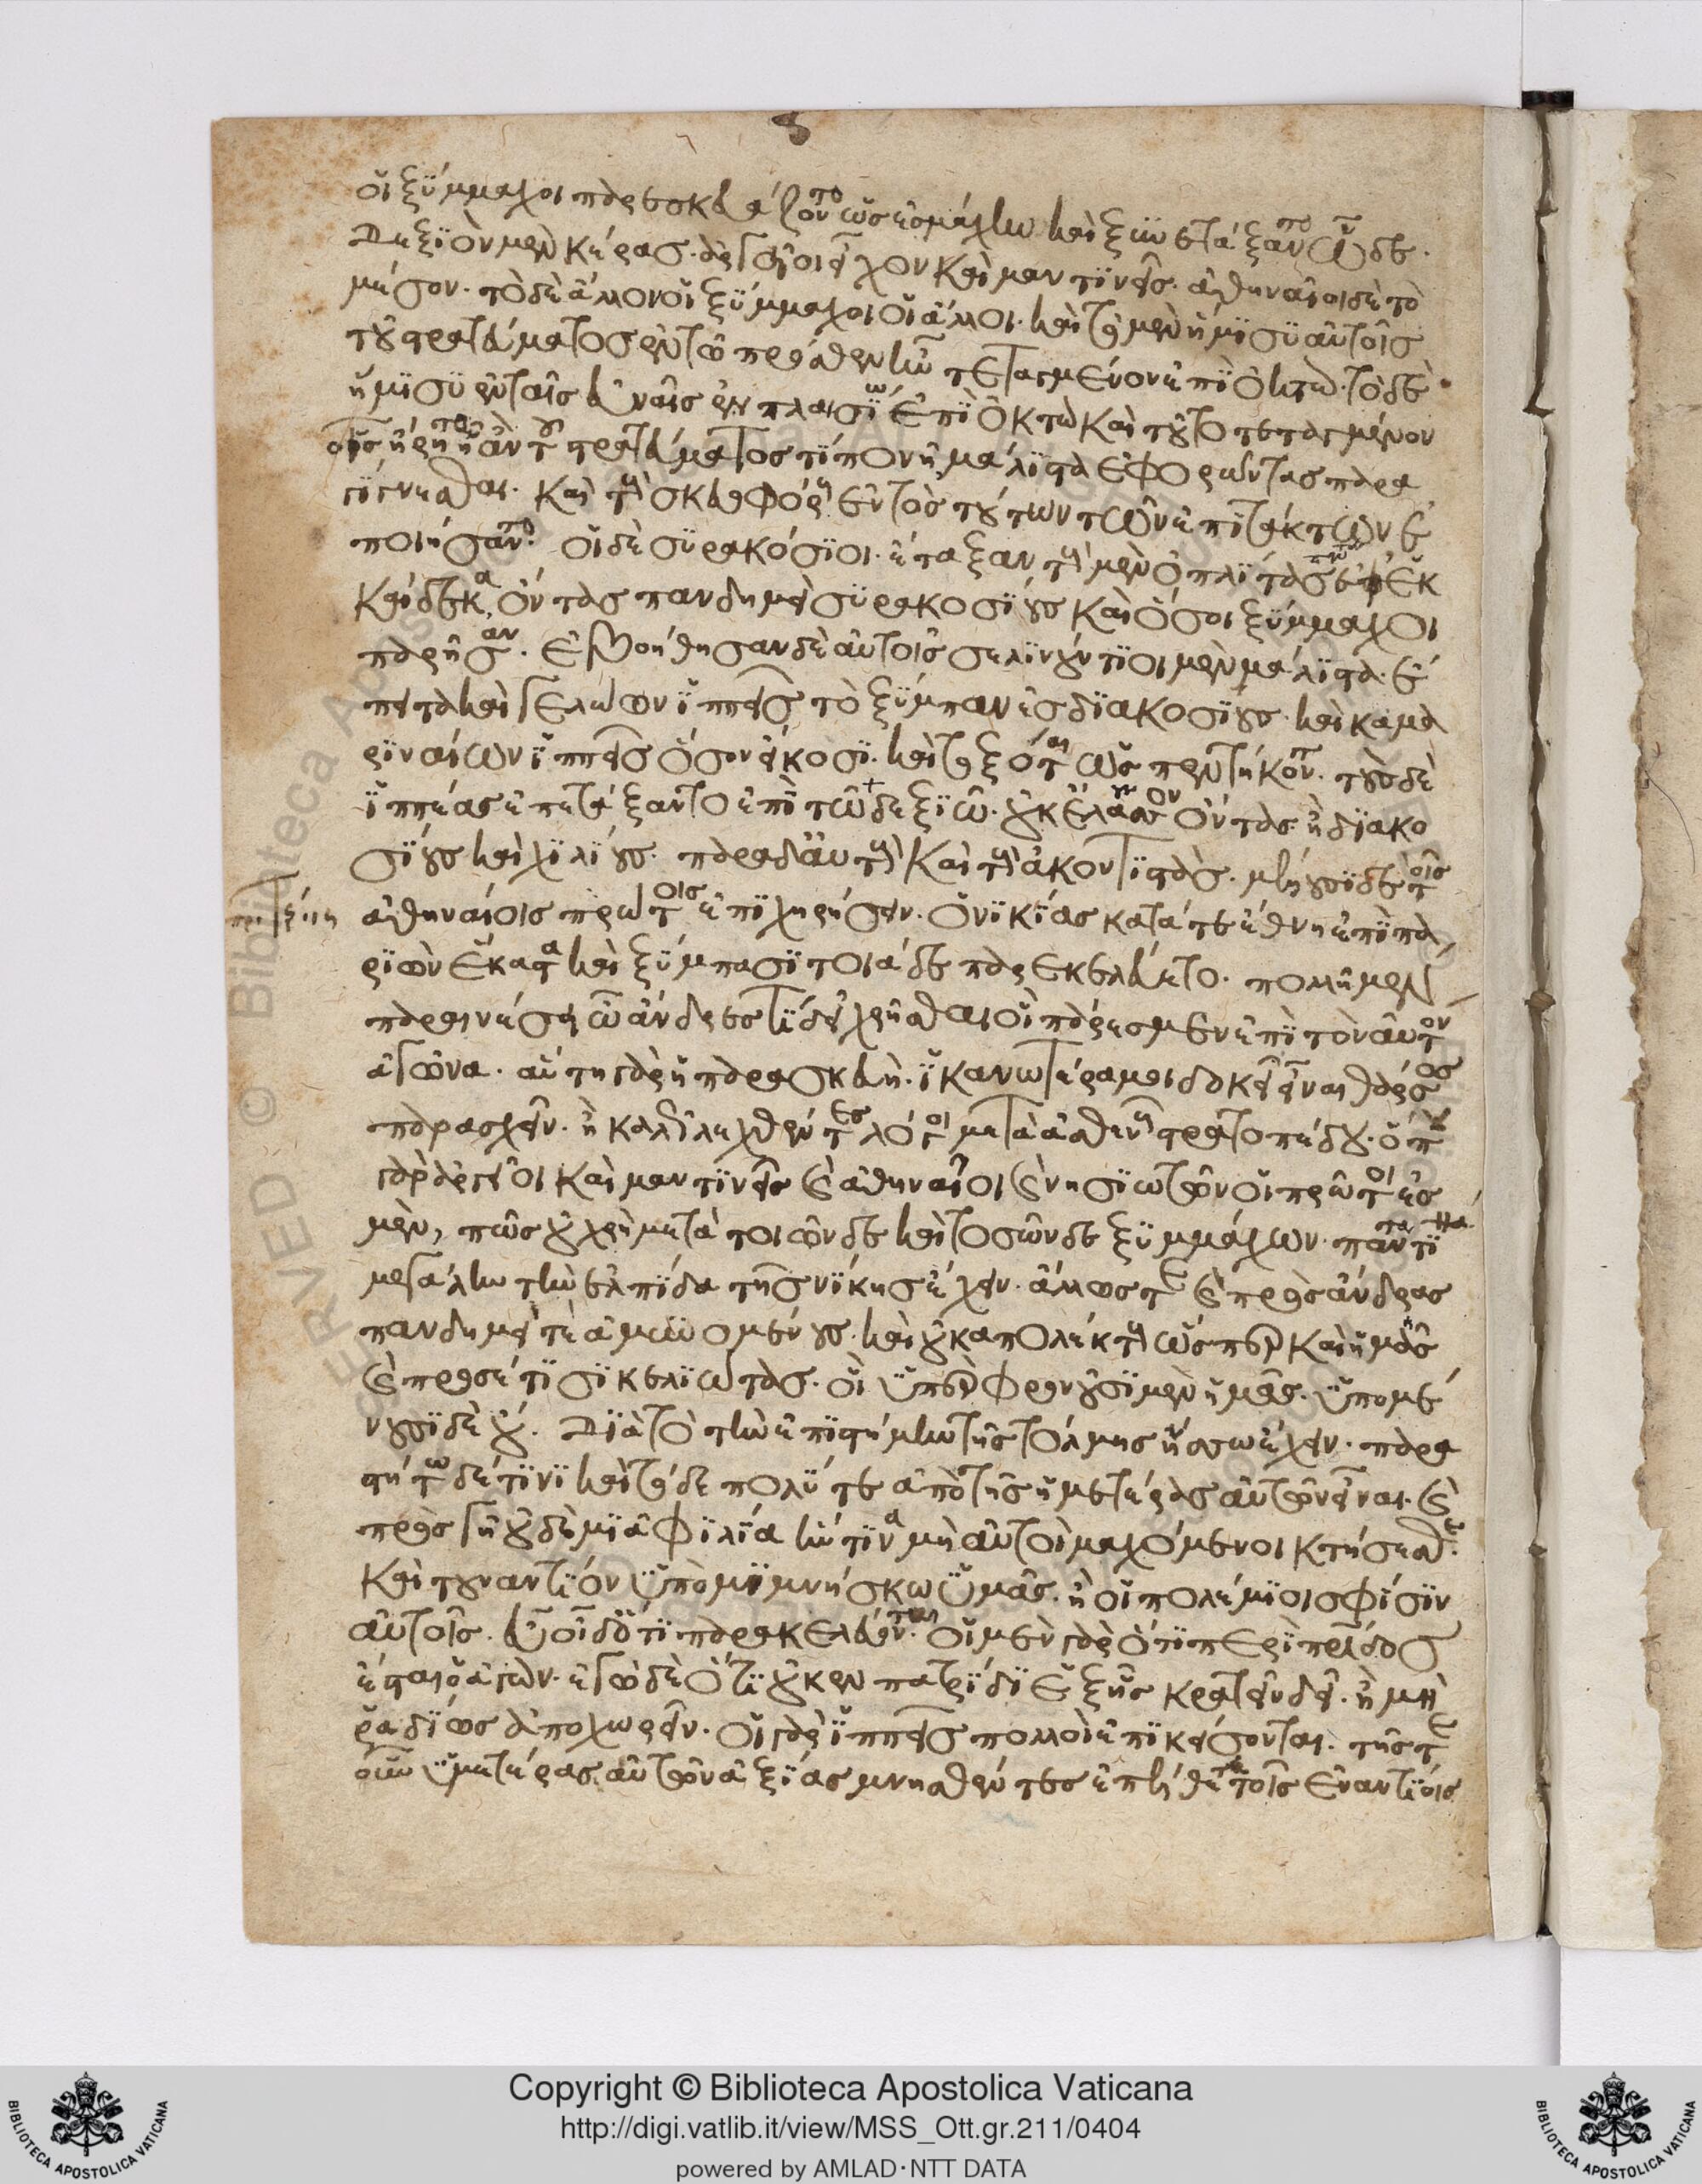 οἱ ξύμμαχοι παρεσκευάζοντο ὡς ἐς μάχην καὶ ξυνετάξαντο ὧδε.
δεξιὸν μὲν κέρας ἀργεῖοι εἶχον καὶ μαντινεῖς. ἀθηναῖοι δὲ τὸ
μέσον. τὸ δὲ ἄλλο οἱ ξύμμαχοι οἱ ἄλλοι. καὶ τὸ μὲν ἥμισυ αὐτοῖς
τοῦ στρατεύματος ἐν τῷ πρόσθεν ἦν τεταγμένον ἐπὶ ὀκτώ. τὸ δὲ
ἥμισυ ἐν ταῖς εὐναῖς ἐν πλαισίῳ ἐπὶ ὀκτὼ καὶ τοῦτο τεταγμένον
οἷς εἴρητο ᾗ ἂν τοῦ στρατεύματός τι πονῇ μάλιστα ἐφορῶντας παρα
γίγνεσθαι. καὶ τοὺς σκευοφόρους ἐντὸς τούτων τῶν ἐπιτάκτων ἐ
ποιήσαντο. οἱ δὲ συρακόσιοι. ἔταξαν τοὺς μὲν ὁπλίτας ἐφ ἑκ
καίδεκα, ὄντας πανδημεὶ συρακοσίους καὶ ὅσοι ξύμμαχοι
παρῆσαν. ἐβοήθησαν δὲ αὐτοῖς σελινούντιοι μὲν μάλιστα. ἔ
πειτα καὶ γελώων ἱππεῖς τὸ ξύμπαν ἐς διακοσίους. καὶ καμα
ριναίων ἱππεῖς ὅσον εἴκοσι. καὶ τοξόται ὡς πεντήκοντα. τοὺς δὲ
ἱππέας ἐπετάξαντο ἐπὶ τῷ δεξιῷ. οὐκ ἔλασσον ὄντας ἢ διακο
σίους καὶ χιλίους. παρὰ δ' αὐτοὺς καὶ τοὺς ἀκοντιστάς. μέλλουσι δὲ τοῖς
ἀθηναίοις πρώτοις ἐπιχειρήσειν. ὁ νικίας κατά τε ἔθνη ἐπιπα
ριὼν ἕκαστα καὶ ξύμπασι τοιάδε παρεκελεύετο. πολλῇ μὲν
παραινέσει ὦ ἄνδρες τί δεῖ χρῆσθαι οἳ πάρεσμεν ἐπὶ τὸν αὐτὸν
ἀγῶνα. αὐτὴ γὰρ ἡ παρασκευή. ἱκανωτέρα μοι δοκεῖ εἶναι θάρσος
παρασχεῖν. ἢ καλῶς λεχθέντες λόγοι μετὰ ἀσθενοῦς στρατοπέδου. ὅπου
γὰρ ἀργεῖοι καὶ μαντινεῖς καὶ ἀθηναῖοι καὶ νησιωτῶν οἱ πρῶτοι ἐσ
μέν, πῶς οὐ χρὴ μετὰ τοιῶνδε καὶ τοσῶνδε ξυμμάχων. πάντα τινὰ
μεγάλην τὴν ἐλπίδα τῆς νίκης ἔχειν. ἄλλως τε καὶ πρὸς ἄνδρας
πανδημεί τε ἀμυνομένους. καὶ οὐκ ἀπολέκτους ὥσπερ καὶ ἡμᾶς
καὶ προσέτι σικελιώτας. οἳ ὑπερφρονοῦσι μὲν ἡμᾶς. ὑπομέ
νουσι δὲ οὔ. διὰ τὸ τὴν ἐπιστήμην τῆς τόλμης ἥσσω ἔχειν. παρα
στήτω δέ τινι καὶ τόδε πολύ τε ἀπὸ τῆς ἡμετέρας αὐτῶν εἶναι. καὶ
πρὸς γῇ οὐδεμιᾷ φιλίᾳ ἥντινα μὴ αὐτοὶ μαχόμενοι κτήσεσθε.
καὶ τοὐναντίον ὑπομιμνήσκω ὑμᾶς. ἢ οἱ πολέμιοι σφίσιν
αὐτοῖς. εὖ οἶδ' ὅτι παρακελεύονται. οἱ μὲν γὰρ ὅτι περὶ πατρίδος
ἔσται ὁ ἀγών. ἐγὼ δὲ ὅτι οὐκ ἐν πατρίδι ἐξ ἧς κρατεῖν δεῖ. ἢ μὴ
ῥᾳδίως ἀποχωρεῖν. οἱ γὰρ ἱππεῖς πολλοὶ ἐπικείσονται. τῆς τε
οὖν ὑμετέρας αὐτῶν ἀξίας μνησθέντες ἐπέλθετε τοῖς ἐναντίοις
Copyright © Biblioteca Apostolica Vaticana
http://digi.vatlib.it/view/MSS_Ott.gr.211/0404
powered by AMLAD·NTT DATA